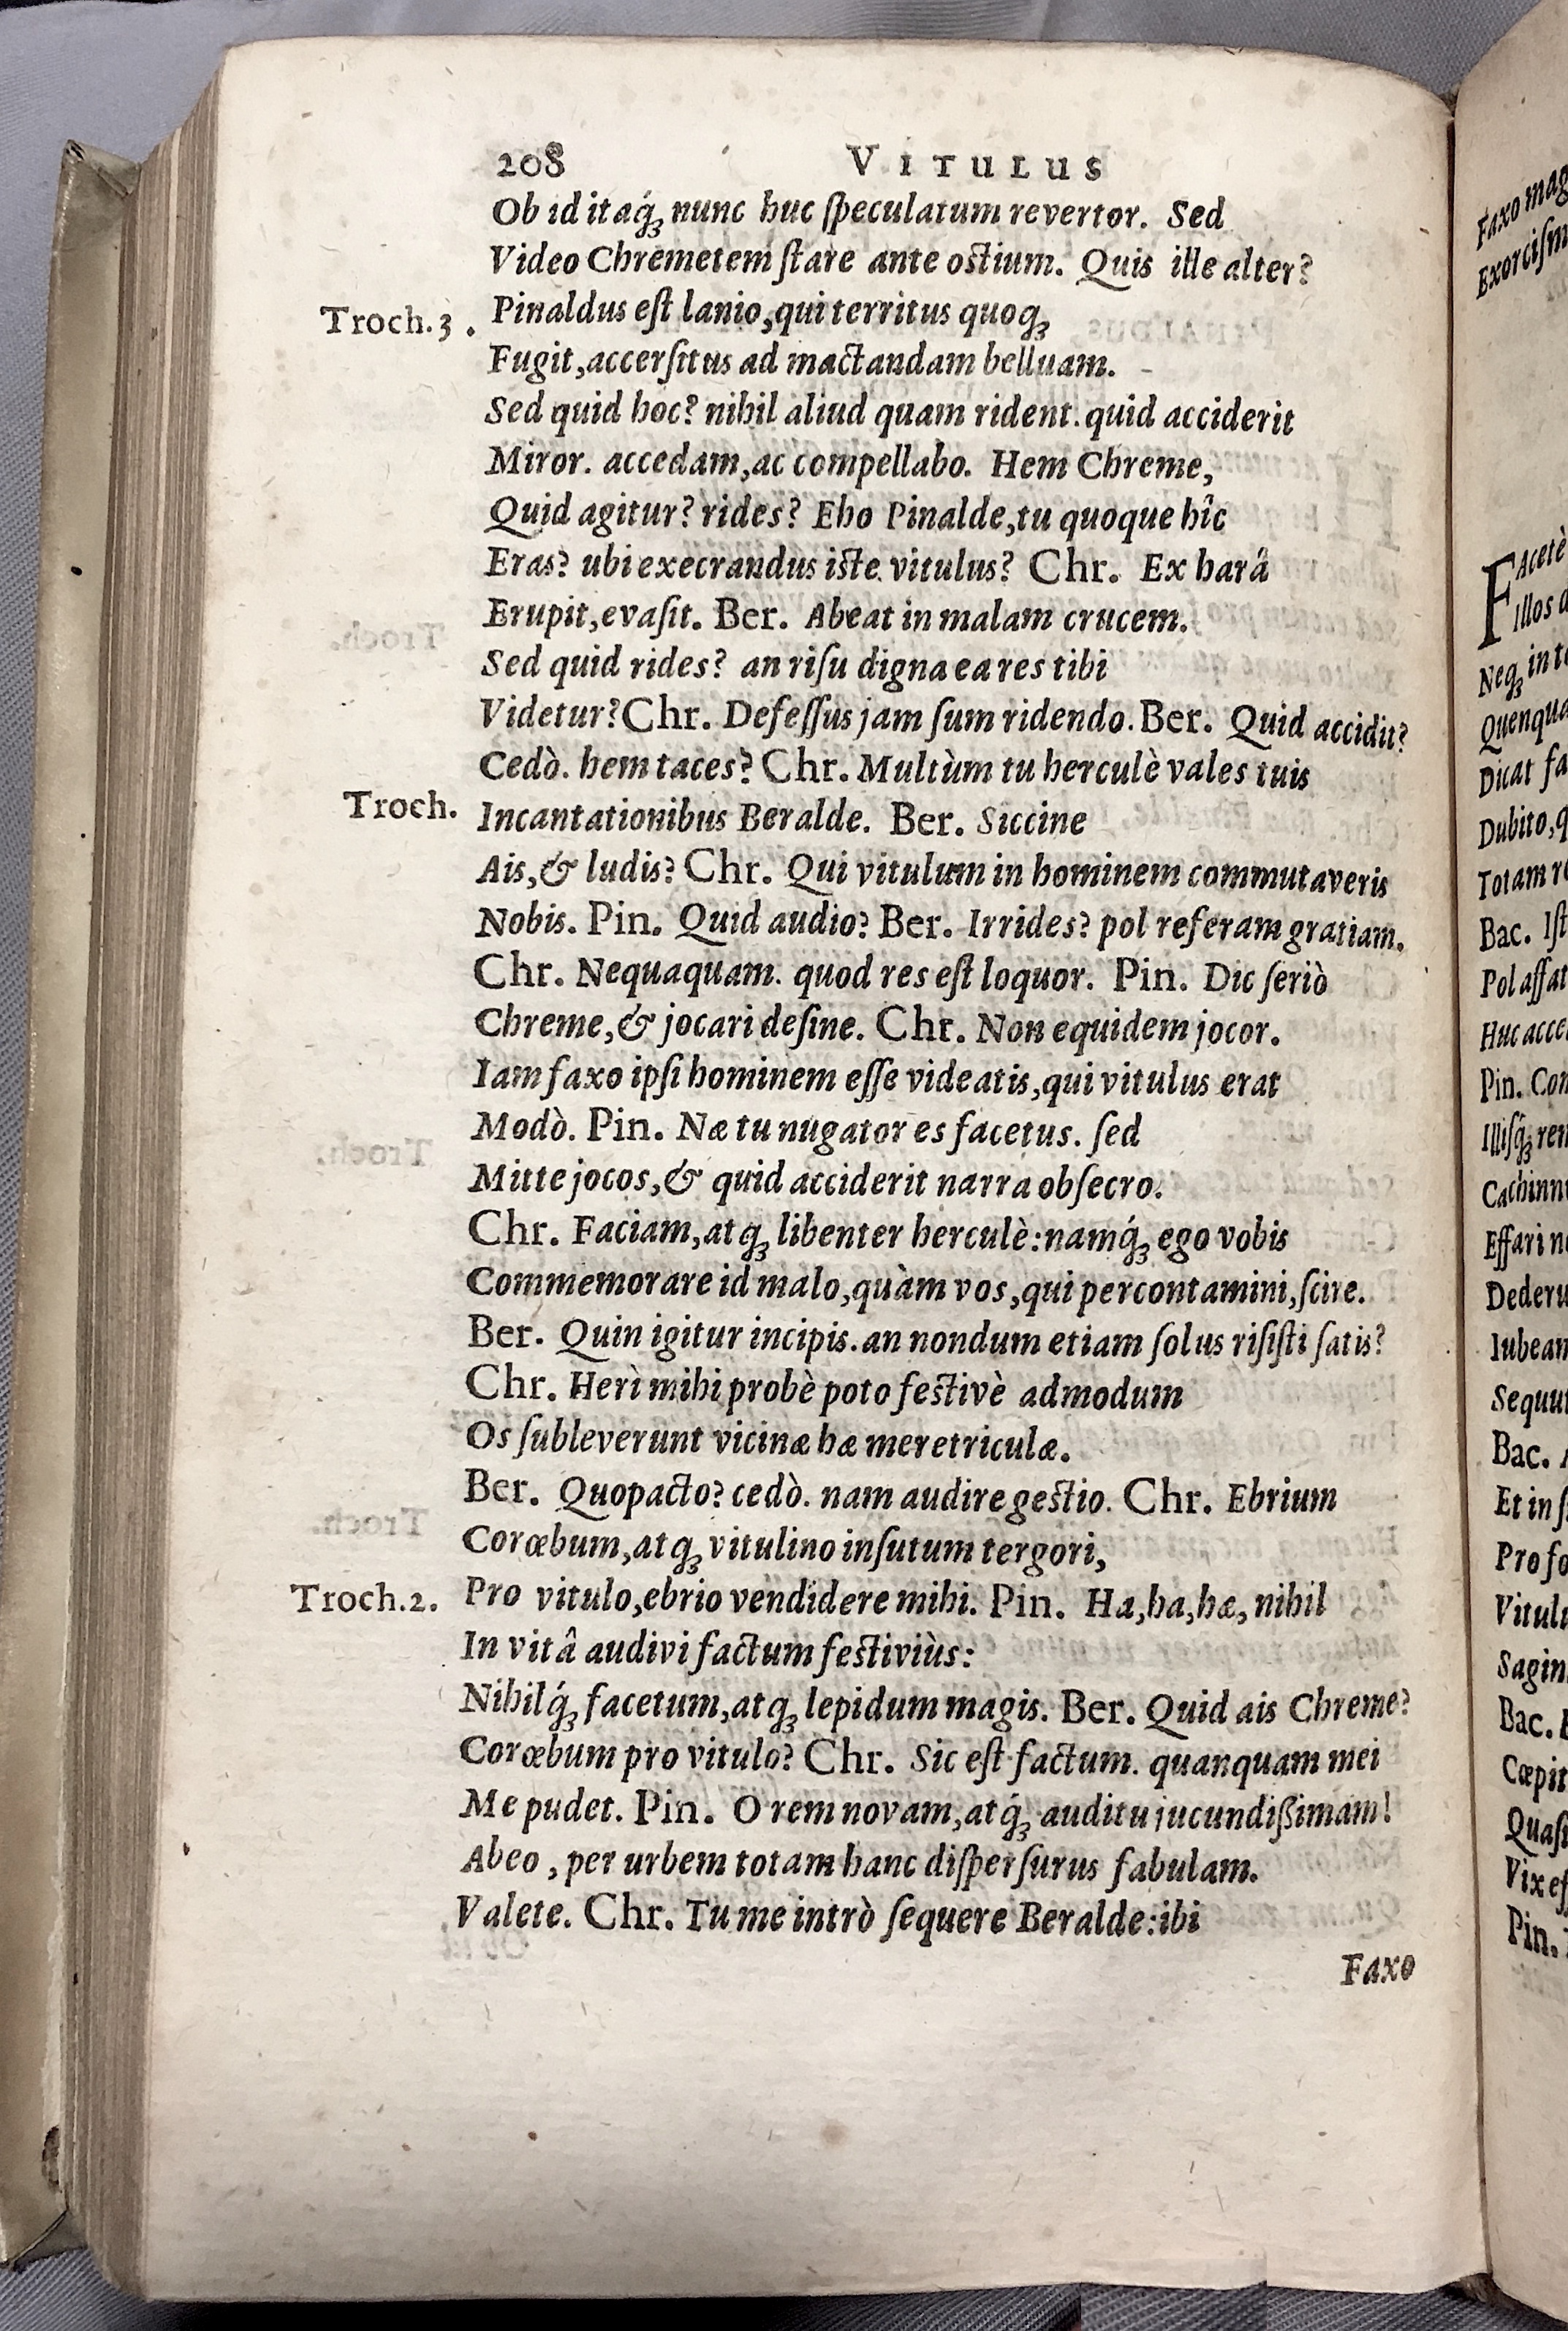 208 VITULUS
Ob id itaq́ꝫ nunc huc ſpeculatum revertor. Sed
Video Chremetem ſtare ante ostium. Quis ille alter?
Troch.3. Pinaldus eſt lanio,qui territus quoqꝫ
Fugit,accerſitus ad mactandam belluam.
Sed quid hoc? nihil aliud quam rident.quid acciderit
Miror. accedam,ac compellabo. Hem Chreme,
Quid agitur? rides? Eho Pinalde,tu quoque hîc
Eras? ubi execrandus iste vitulus? Chr. Ex harâ
Erupit,evaſit. Ber. Abeat in malam crucem.
Sed quid rides? an riſu digna ea res tibi
Videtur?Chr. Defeſſus jam ſum ridendo.Ber. Quid accidit?
Cedò. hem taces? Chr. Multùm tu herculè vales tuis
Troch. Incantationibus Beralde. Ber. Siccine
Ais,& ludis? Chr. Qui vitulum in hominem commutaveris
Nobis. Pin. Quid audio? Ber. Irrides? pol referam gratiam.
Chr. Nequaquam. quod res eſt loquor. Pin. Dic ſeriò
Chreme,& jocari deſine. Chr. Non equidem jocor.
Iam faxo ipſi hominem eſſe videatis,qui vitulus erat
Modò. Pin. Næ tu nugator es facetus. ſed
Mitte jocos,& quid acciderit narra obſecro.
Chr. Faciam,atqꝫ libenter herculè:namq́ꝫ ego vobis
Commemorare id malo,quàm vos,qui percontamini,ſcire.
Ber. Quin igitur incipis.an nondum etiam ſolus riſiſti ſatis?
Chr. Herì mihi probè poto festivè admodum
Os ſubleverunt vicinæ hæ meretriculæ.
Ber. Quopacto? cedò. nam audire gestio. Chr. Ebrium
Corœbum,atqꝫ vitulino inſutum tergori,
Troch.2. Pro vitulo,ebrio vendidere mihi. Pin. Ha,ha,hæ, nihil
In vitâ audivi factum festiviùs:
Nihilq́ꝫ facetum,atqꝫ lepidum magis. Ber. Quid ais Chreme?
Corœbum pro vitulo? Chr. Sic eſt factum. quanquam mei
Me pudet. Pin. O rem novam,atq́ꝫ auditu jucundißimam!
Abeo , per urbem totam hanc diſperſurus fabulam.
Valete. Chr. Tu me intrò ſequere Beralde:ibi
Faxo
Faxo
F
Acetè
Illos
Dicat
Dubito,
Bac.
Pin.
Bac.
Et in
Bac.
Pin.